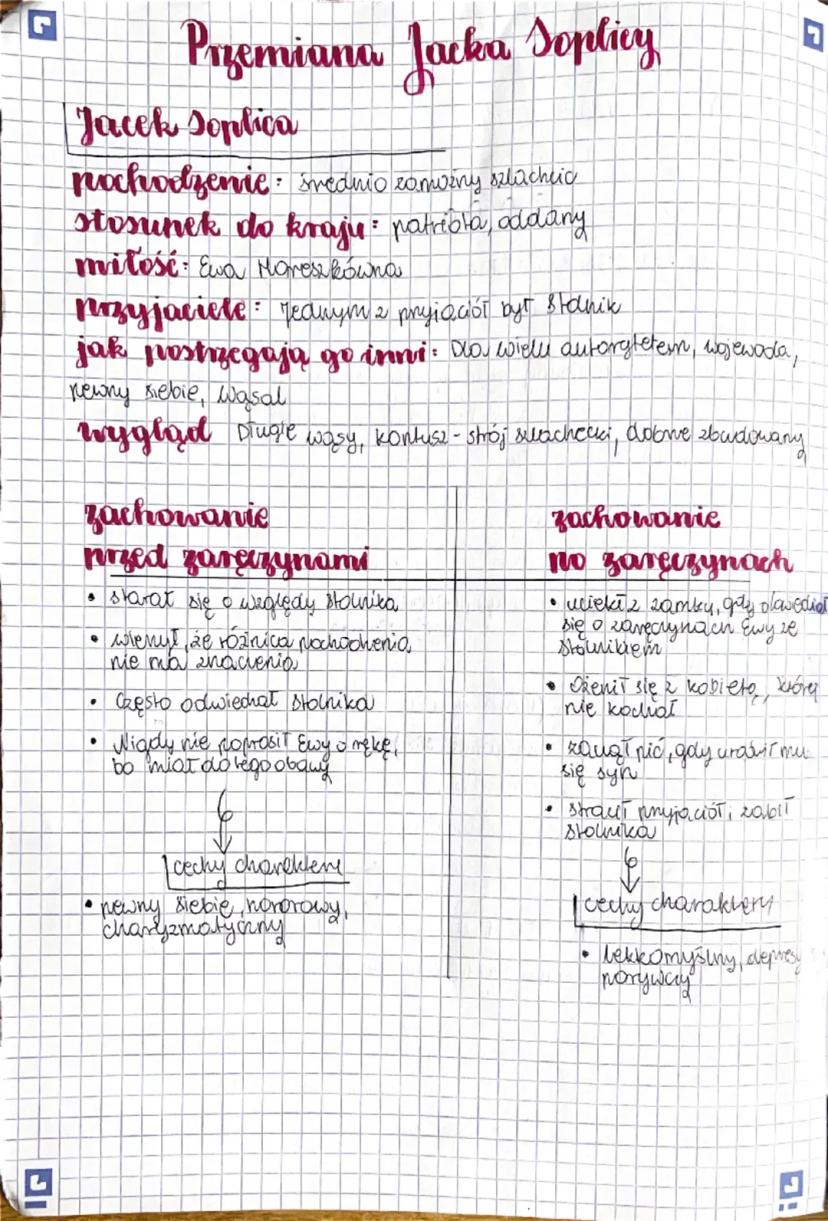 Przemiana Jacka Soplicy
Jacek Soplica
pochodzenie: średnio zamożny szlachcic
stosunek do kraju: patriota, oddany
miłość: Ewa Horeszkówna
przyjaciele: jednym z przyjaciół był Stolnik
jak postrzegają go inni: Dla wielu autorytetem, wojewoda,
pewny siebie, Wąsal
wygląd Długie wąsy, kontusz - strój szlachecki, dobrze zbudowany
zachowanie
przed zaręczynami
• starał się o względy Stolnika
• wierzył, że różnica pochodzenia
nie ma znaczenia
• Często odwiedzał Stolnika
• Nigdy nie poprosił Ewy o rękę,
bo miał do tego obawy
cechy charakteru
• pewny siebie, honorowy,
charyzmatyczny
zachowanie
po zaręczynach
• uciekł z zamku, gdy dowiedział
się o zaręczynach Ewy ze
Stolnikiem
• Ożenił się z kobietą, której
nie kochał
• zaczął pić, gdy urodził mu
się syn
• stracił przyjaciół i zabił
Stolnika
cechy charakteru
• lekkomyślny,
porywczy